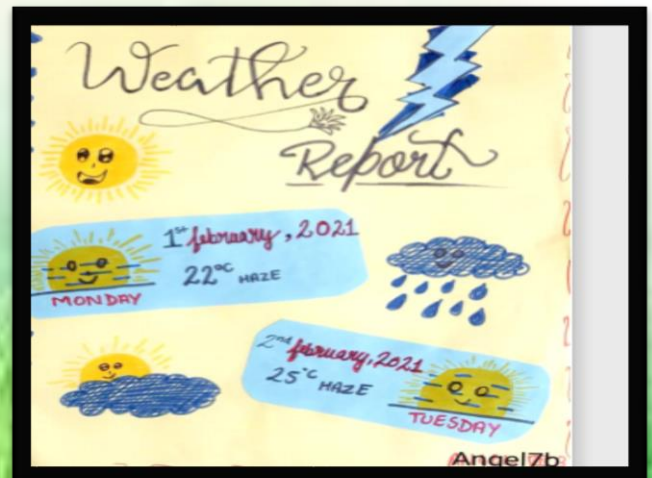 Weather
Report
1st february, 2021
22°C HAZE
MONDAY
2nd february, 2021
25°C HAZE
TUESDAY
Angel7b